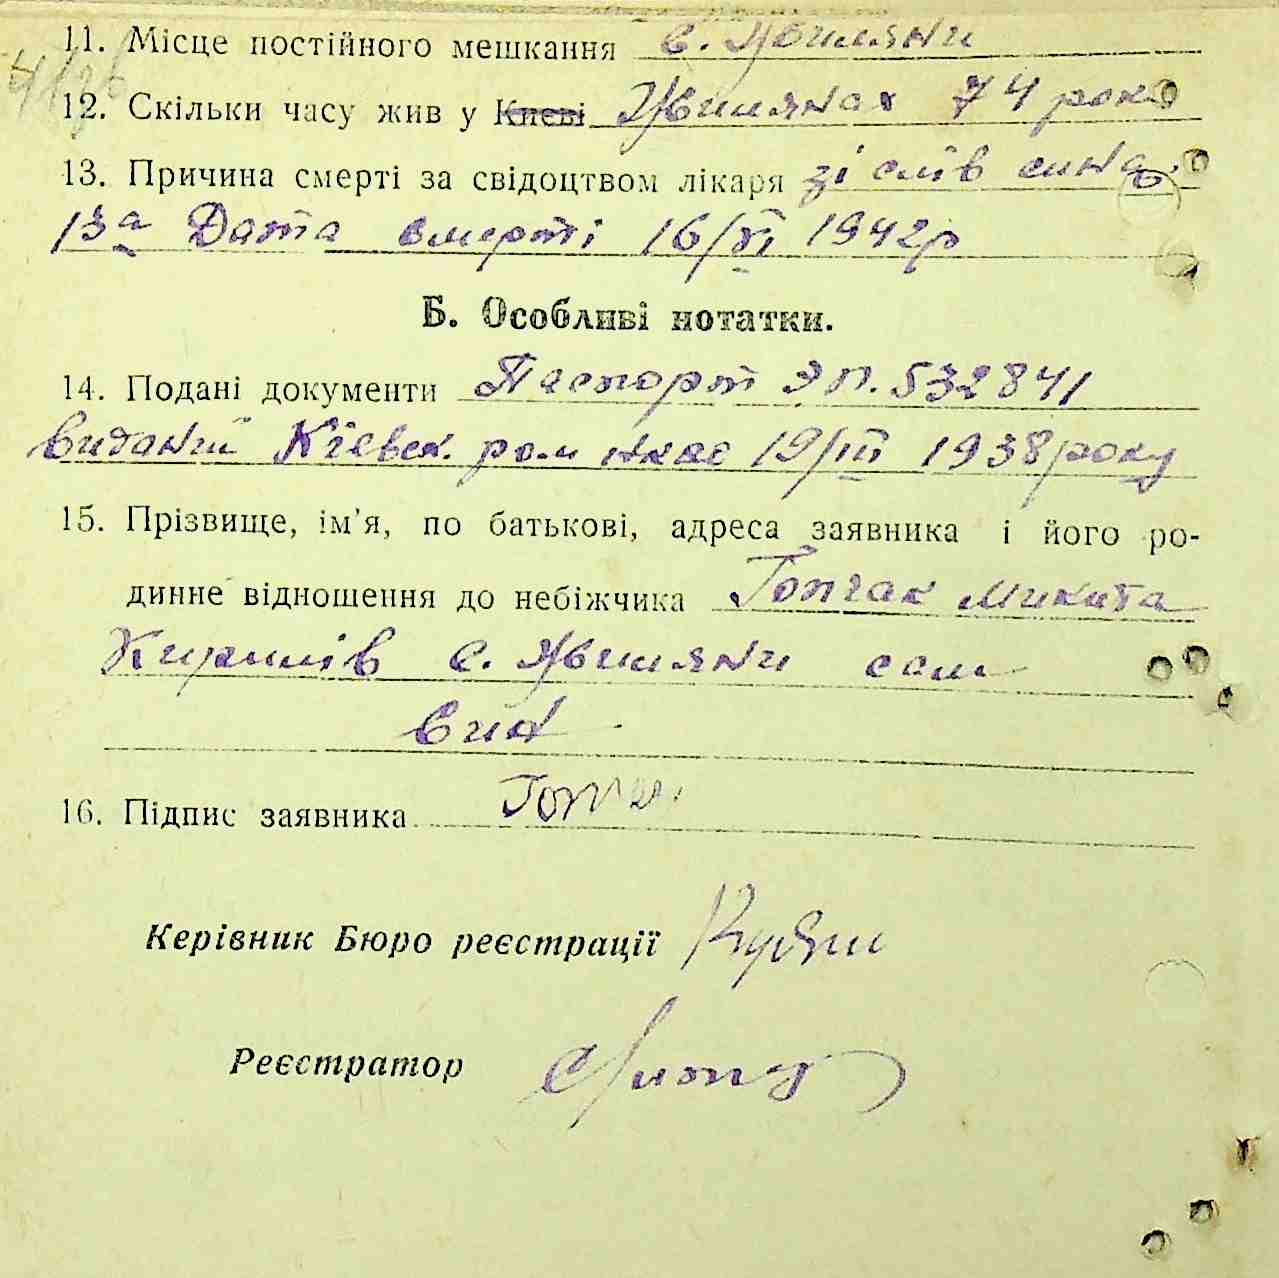 11. Місце постійного мешкання с. Жвиляни
12. Скільки часу жив у Києві Жвилянах 74 роки
13. Причина смерті за свідоцтвом лікаря зі слів сина.
13а Дата смерті 16/VI 1942р
Б. Особливі нотатки.
14. Подані документи Паспорт ЭП. 532841
виданий Київск. 19/III 1938 року
15. Прізвище, ім’я, по батькові, адреса заявника і його ро-
динне відношення до небіжчика Гончак Микита
Кирилів с. Жвиляни
син
16. Підпис заявника
Керівник Бюро реєстрації
Реєстратор